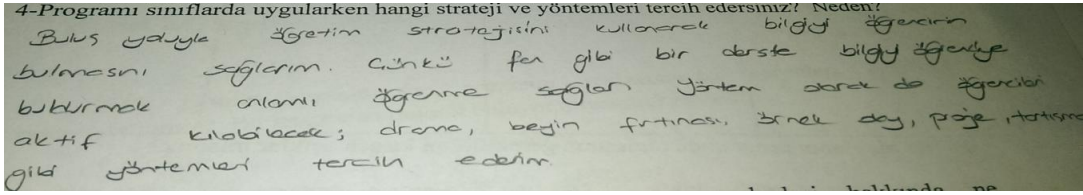 4-Programı sınıflarda uygularken hangi strateji ve yöntemleri tercih edersiniz? Neden?
Buluş yoluyla öğretim stratejisini kullanarak bilgiyi öğrencinin
bulmasını sağlarım. Çünkü fen gibi bir derste bilgiyi öğrenciye
buldurmak anlamlı öğrenme sağlar. Yöntem olarak da öğrencileri
aktif kılabilecek; drama, beyin fırtınası, örnek olay, proje, tartışma
gibi yöntemleri tercih ederim.
hakkında ne